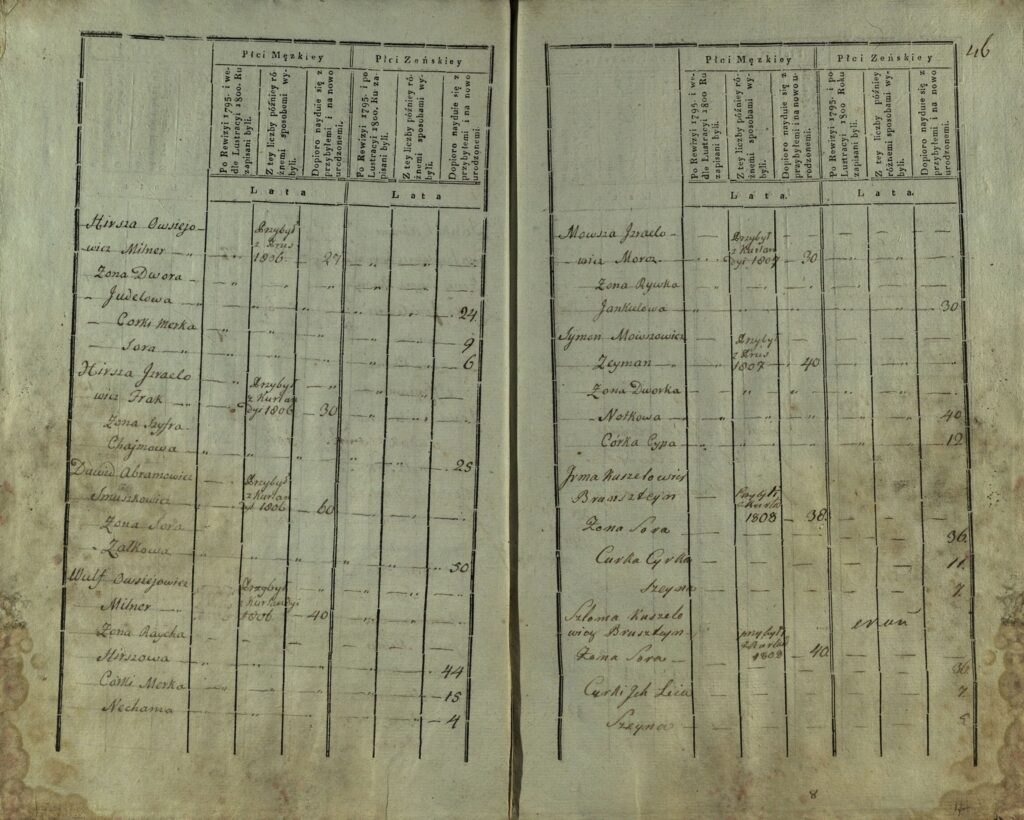 Płci Męzkiey Płci Zeńskiey
Po Rewizyi 1795. i we-
dle Lustracyi 1800. Ru
zapisani byli.
Z tey liczby późniey ró-
żnemi sposobami wy-
byli.
Dopioro nayduie się z
przybyłemi i na nowo
urodzonemi.
Po Rewizyi 1795. i po
Lustracyi 1800. Ru za-
pisani byli.
Z tey liczby późniey ró-
żnemi sposobami wy-
byli.
Dopioro nayduie się z
przybyłemi i na nowo
urodzonemi.
Lata Lata
Hirsza Owsiejo-
wicz Milner Przybył z Prus 1806 27
Zona Dwora
Judelowa 24
Corki Merka 9
Sora 6
Hirsza Jzraelo
wicz Frak Przybył z Kurlan dyi 1806 30
Zona Szyfra
Chajmowa 25
Dawid Abramowicz
Smuszkowicz Przybył z Kurlan dyi 1806 60
Zona Sora
Załkowa 50
Wulf Owsiejowicz
Milner Przybył z Kurlandyi 1806 40
Zona Raycha
Hirszowa 44
Córki Merka 15
Nechama 4
46
Płci Męzkiey Płci Zeńskiey
Po Rewizyi 1795. i we-
dle Lustracyi 1800 Ru
zapisani byli.
Z tey liczby późniey ró-
żnemi sposobami wy-
byli.
Dopioro nayduie się z
przybyłemi i na nowo u-
rodzonemi.
Po Rewizyi 1795. i po
Lustracyi 1800 Roku
zapisani byli.
Z tey liczby późniey
różnemi sposobami wy-
byli.
Dopioro nayduie się z
przybyłemi i na nowo
urodzonemi.
Lata. Lata.
Mowsza Jzraelo-
wicz Moroz Przybył z Kurlan dyi 1807 30
Zona Rywka
Jankielowa 30
Symon Mowszowicz
Zeyman Przybył z Prus 1807 40
Zona Dworka
Notkowa 40
Córka Cypa 12
Jrma Kuszelowicz
Branszteyn Przybył z Kurla 1808 38
Zona Sora 36
Curka Cyrka 11
Szeyna 7
Szloma Kuszelo
wicz Brusztyn przybył z Kurlan 1808 40
Zona Sora 36
Curki Jch Licia 7
Szeyna
8